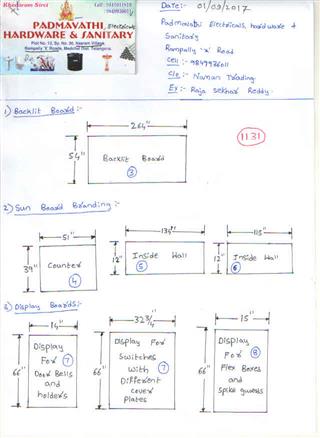 Khedaram Sirvi
Cell: 9441011928
PADMAVATHI Electricals,
HARDWARE & SANITARY
Plot No. 12, Sy. No. 36, Nagaram Village,
Rampally 'X' Roads, Medchal Dist. Telangana.
Date:- 01/09/2017
Padmavathi Electricals, hardware &
Sanitary
Rampally 'x' Road
Cell : 9849936011
S/o: Numan Trading
Ex: Raja Sekhar Reddy.
1) Backlit Board:-
1131
264"
54"
Backlit Board
3
2) Sun Board Branding:-
51"
39"
Counter
4
134"
12"
Inside Wall
5
115"
12"
Inside Wall
6
3) Display Boards:-
14"
66"
Display
For 7
Door Bells
and
holders
32 3/4"
66"
Display For
Switches
With 7
Different
cover
Plates
15"
66"
Display
For 8
Flex Boxes
and
Spike guards